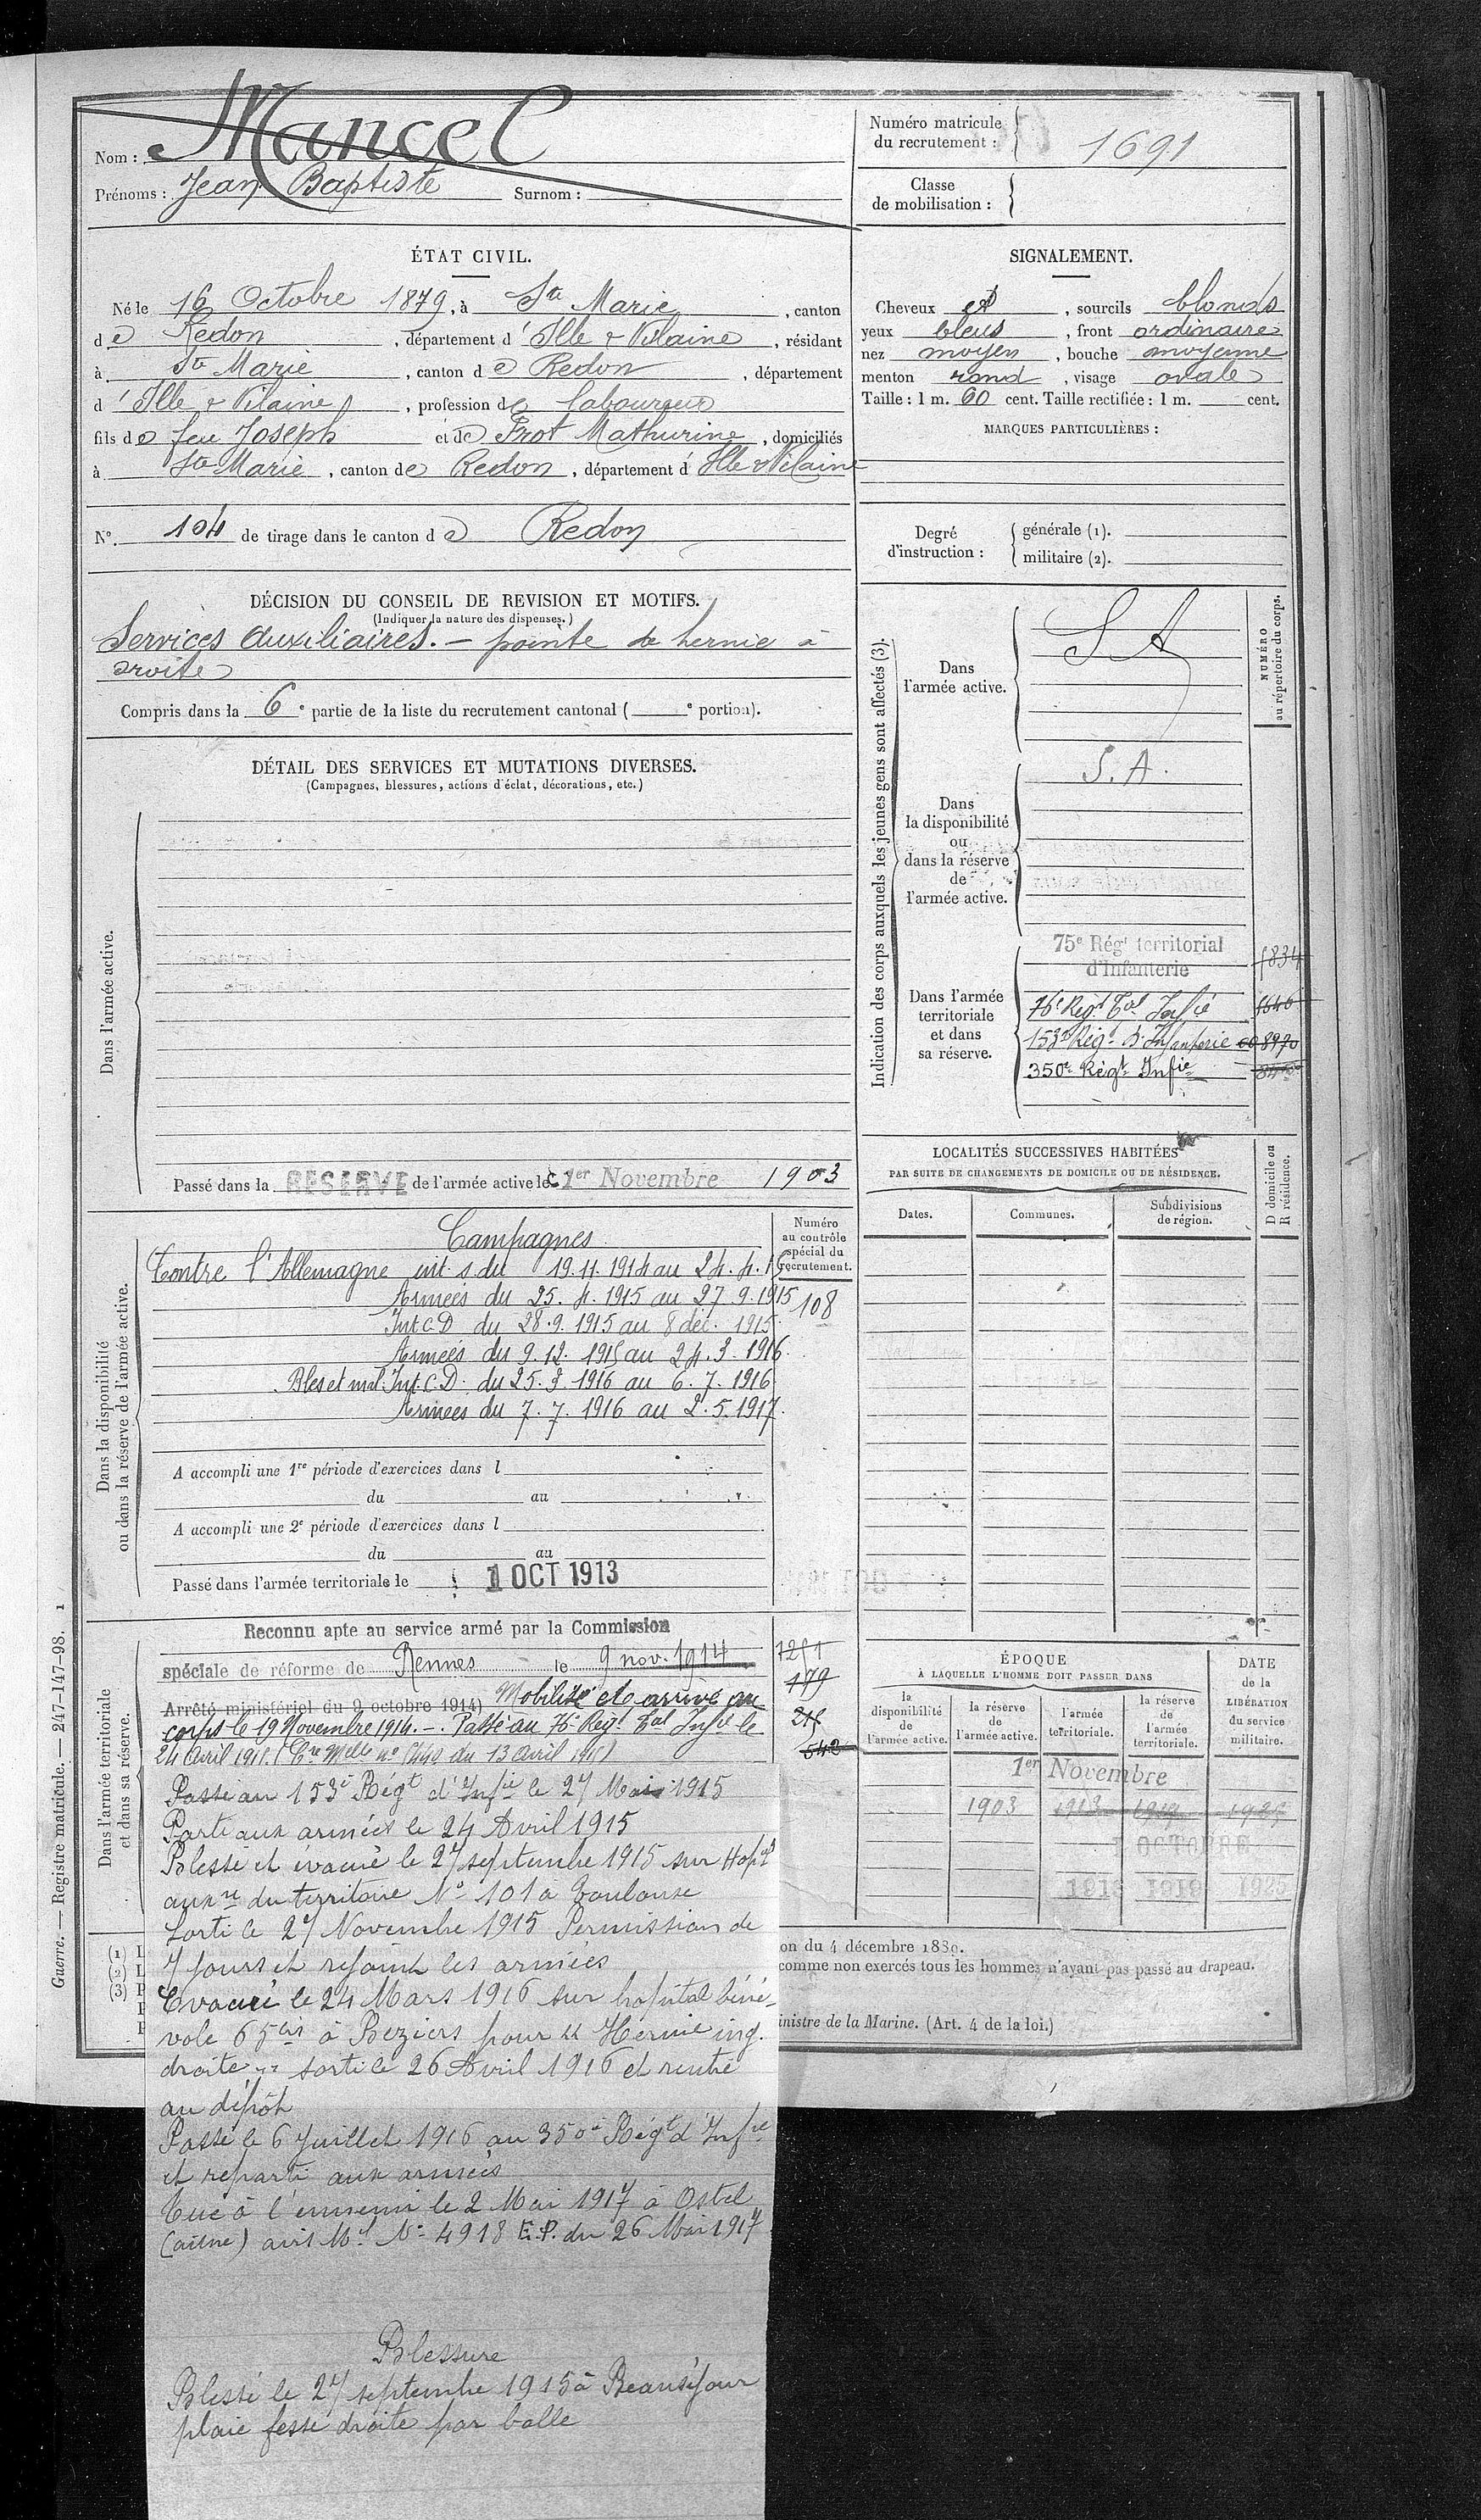 Nom : Mancel
Prénoms : Jean Baptiste Surnom :
Numéro matricule du recrutement : 1691
Classe de mobilisation :
ÉTAT CIVIL.
Né le 16 Octobre 1879, à Ste Marie, canton
de Redon, département d'Ille & Vilaine, résidant
à Ste Marie, canton de Redon, département
d'Ille & Vilaine, profession de laboureur
fils de feu Joseph et de Frot Mathurine, domiciliés
à Ste Marie, canton de Redon, département d'Ille & Vilaine
N° 104 de tirage dans le canton de Redon
SIGNALEMENT.
Cheveux et, sourcils blonds
yeux bleus, front ordinaire
nez moyen, bouche moyenne
menton rond, visage ovale
Taille : 1 m. 60 cent. Taille rectifiée : 1 m. cent.
MARQUES PARTICULIÈRES :
Degré d'instruction : générale (1).
militaire (2).
DÉCISION DU CONSEIL DE REVISION ET MOTIFS.
(Indiquer la nature des dispenses.)
Services Auxiliaires. — pointe de hernie à
droite
Compris dans la 6e partie de la liste du recrutement cantonal ( e portion).
DÉTAIL DES SERVICES ET MUTATIONS DIVERSES.
(Campagnes, blessures, actions d'éclat, décorations, etc.)
Dans l'armée active.
Passé dans la RESERVE de l'armée active le 1er Novembre 1903
Indication des corps auxquels les jeunes gens sont affectés (3).
NUMÉRO au répertoire du corps.
Dans l'armée active.
S A
Dans la disponibilité ou dans la réserve de l'armée active.
S. A.
Dans l'armée territoriale et dans sa réserve.
75e Régt territorial
d'Infanterie
76e Régt Tal Infie
153e Régt d'Infanterie 8970
350e Régt Infie
Dans la disponibilité ou dans la réserve de l'armée active.
Campagnes
Numéro au contrôle spécial du recrutement.
108
Contre l'Allemagne int. s du 19.11.1914 au 24.4.15
Armées du 25.4.1915 au 27.9.1915
Int C.D du 28.9.1915 au 8 déc. 1915
Armées du 9.12.1915 au 24.3.1916.
Bles et mal. Int. C.D. du 25.3.1916 au 6.7.1916
Armées du 7.7.1916 au 2.5.1917.
A accompli une 1re période d'exercices dans l
du au
A accompli une 2e période d'exercices dans l
du au
Passé dans l'armée territoriale le 1 OCT 1913
LOCALITÉS SUCCESSIVES HABITÉES
PAR SUITE DE CHANGEMENTS DE DOMICILE OU DE RÉSIDENCE.
Dates. Communes. Subdivisions de région.
D domicile ou R résidence.
Dans l'armée territoriale et dans sa réserve.
Reconnu apte au service armé par la Commission
spéciale de réforme de Rennes le 9 nov. 1914
Arrêté ministériel du 9 octobre 1914) Mobilisé et arrivé au
corps le 19 Novembre 1914. — Passé au 76e Régt Tal Infie le
24 Avril 1915.
179
Passé au 153e Régt d'Infie le 27 Mai 1915
Parti aux armées le 24 Avril 1915
Blessé et évacué le 27 septembre 1915 sur Hopal
auxre du territoire N° 101 a Toulouse
Sorti le 27 Novembre 1915 Permission de
7 jours et rejoint les armées
Evacué le 24 Mars 1916 sur hopital béné-
vole 65bis à Beziers pour "Hernie ing.
droite" sorti le 26 Avril 1916 et rentré
au dépôt
Passé le 6 Juillet 1916 au 350e Régt d'Infie
et reparti aux armées
Tué à l'ennemi le 2 Mai 1917 à Ostel
(aisne) avis Mel N° 4918 E.P. du 26 Mai 1917
Blessure
Blessé le 27 septembre 1915 à Beauséjour
plaie fesse droite par balle
ÉPOQUE
À LAQUELLE L'HOMME DOIT PASSER DANS
la disponibilité de l'armée active.
la réserve de l'armée active.
l'armée territoriale.
la réserve de l'armée territoriale.
DATE de la LIBÉRATION du service militaire.
1er Novembre
1903
1 OCTOBRE
1913 1919 1925
on du 4 décembre 1889.
comme non exercés tous les hommes n'ayant pas passé au drapeau.
inistre de la Marine. (Art. 4 de la loi.)
(1) L
(2) L
(3) P
Guerre. — Registre matricule. — 247-147-98. 1